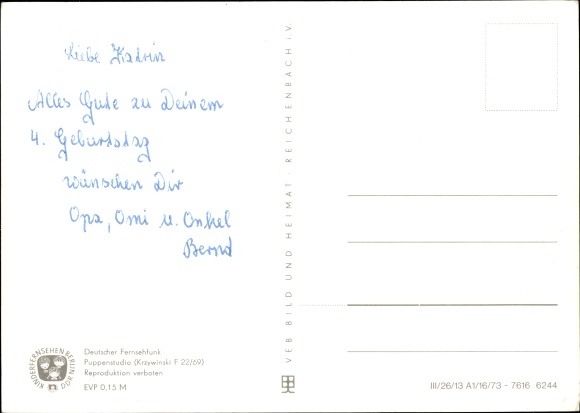 Liebe Kadrin
Alles Gute zu Deinem
4. Geburtstag
wünschen Dir
Opa, Omi u. Onkel
Bernd
KINDERFERNSEHEN BERLIN
DDR
Deutscher Fernsehfunk
Puppenstudio (Krzywinski F 22/69)
Reproduktion verboten
EVP 0,15 M
VEB BILD UND HEIMAT · REICHENBACH i.V.
III/26/13 A1/16/73 - 7616 6244